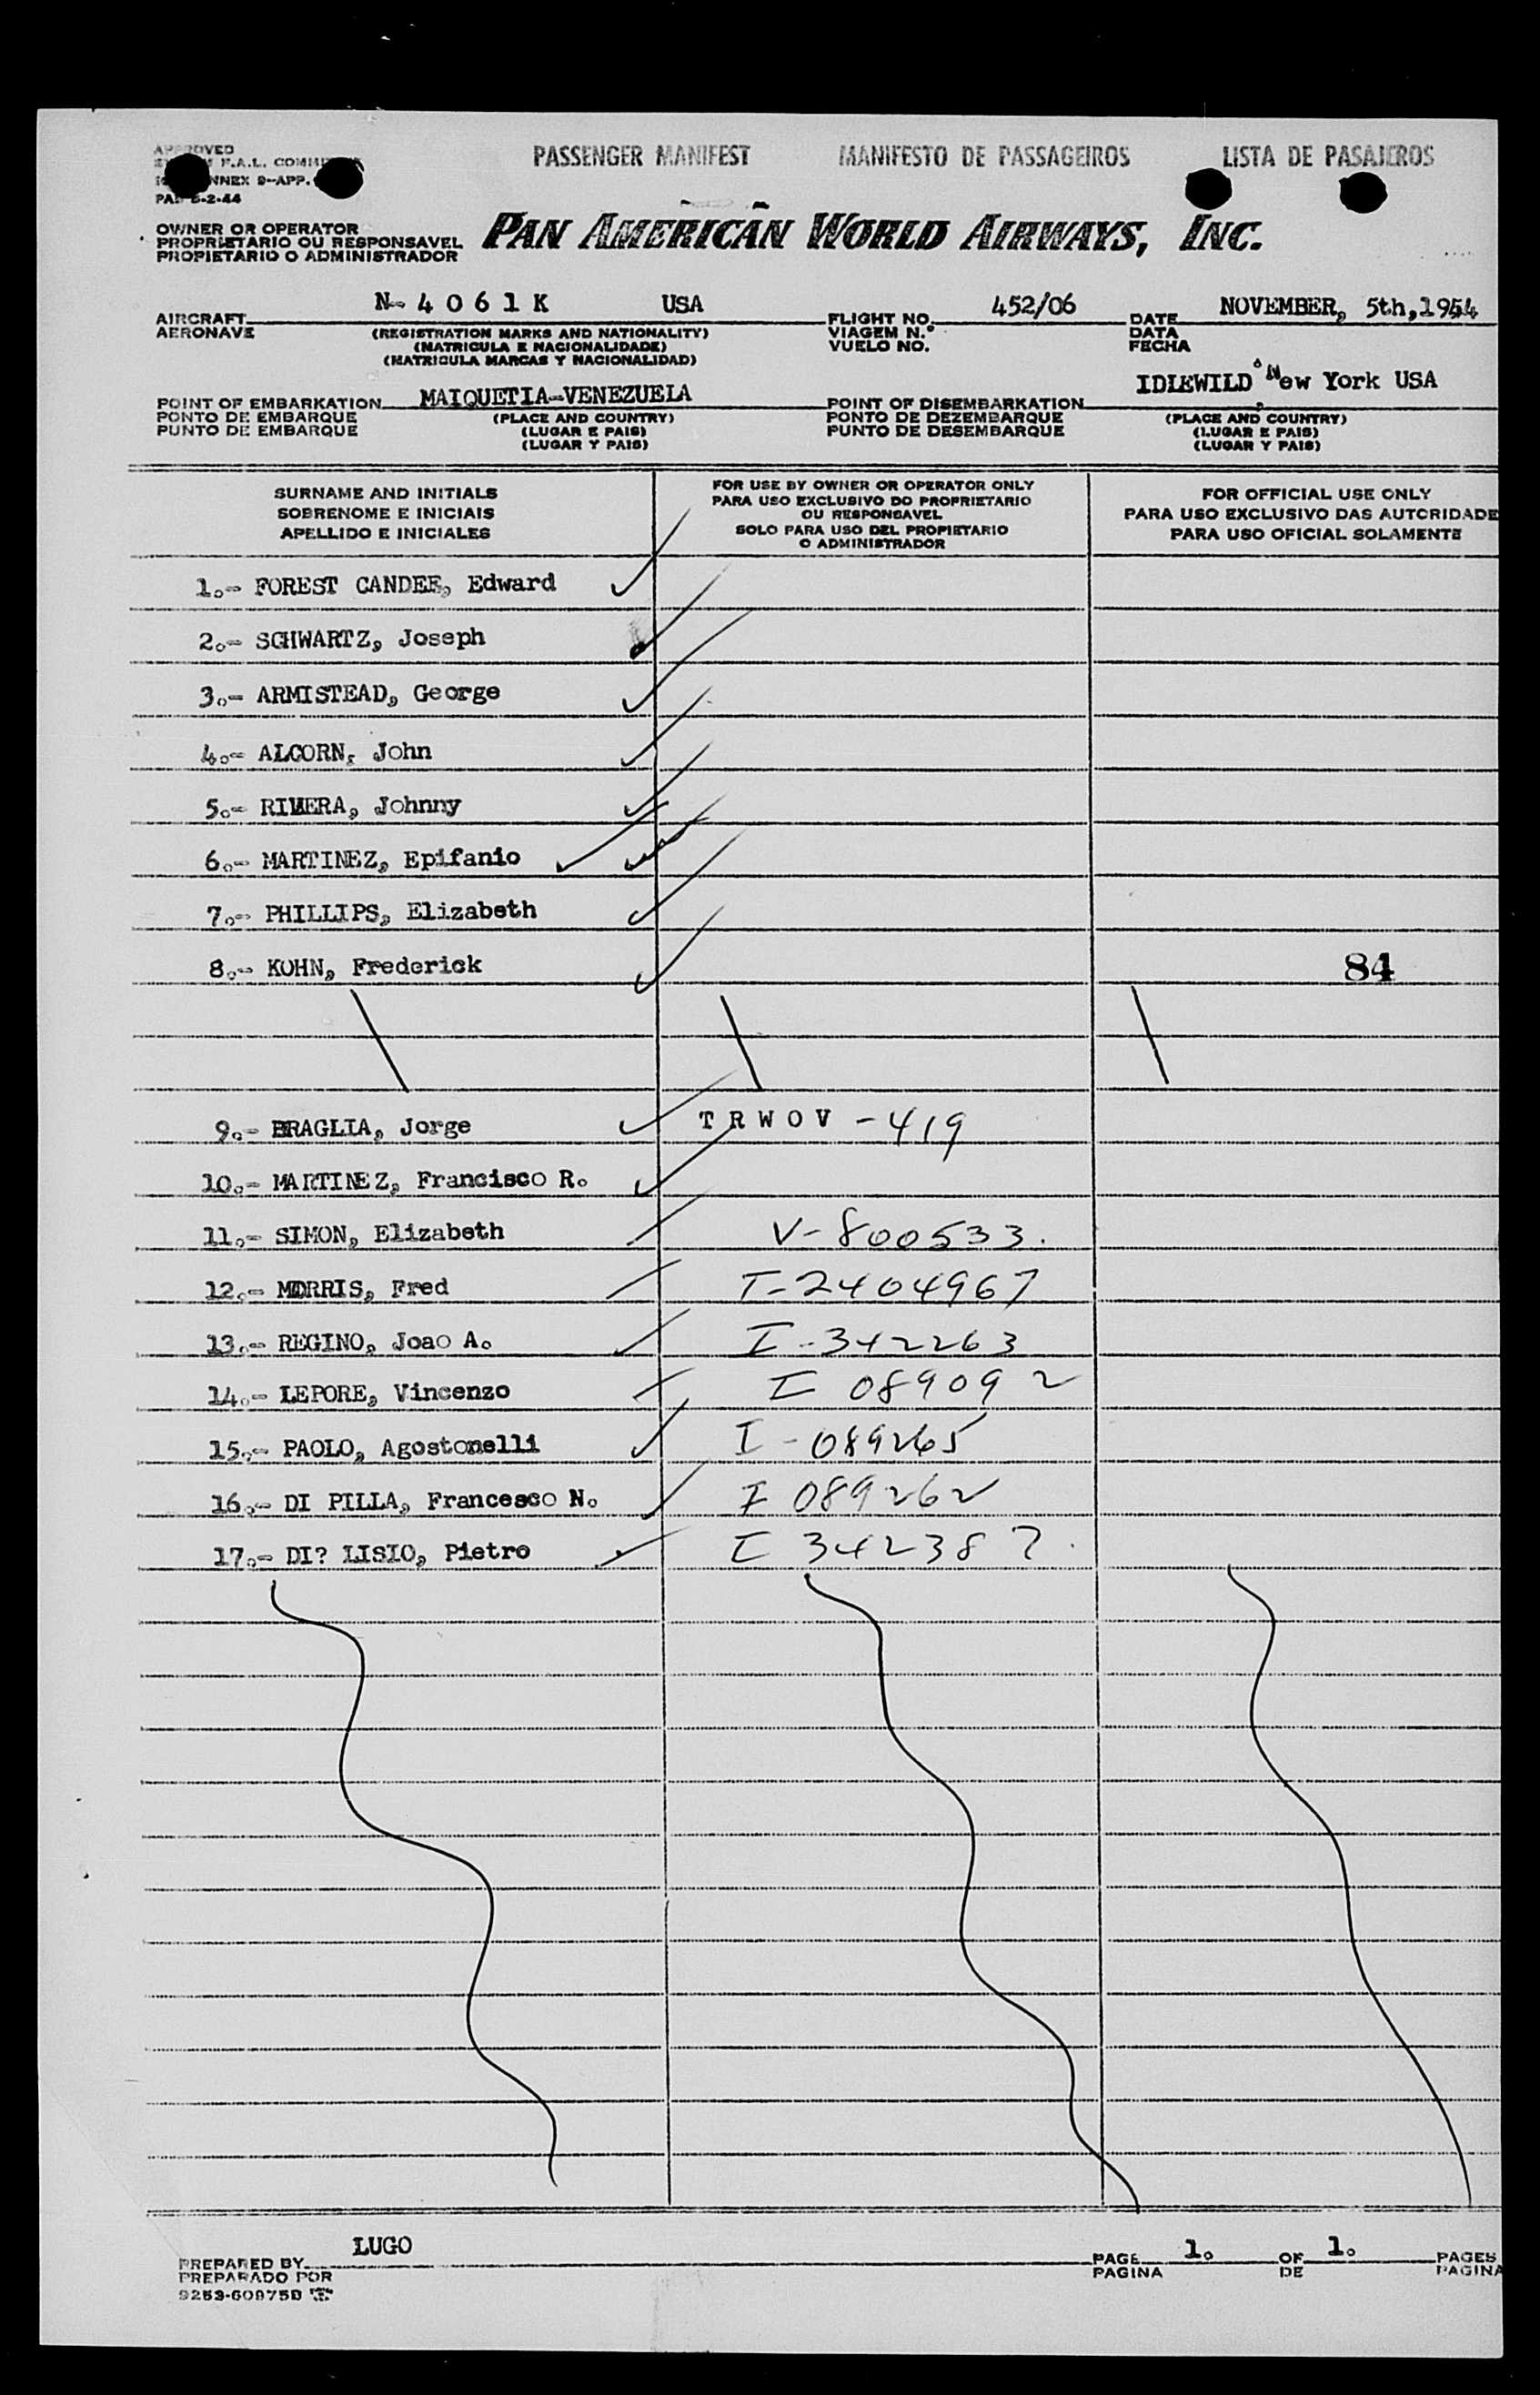 APPROVED
F.A.L.
ANNEX 9-APP.
5-2-44
PASSENGER MANIFEST MANIFESTO DE PASSAGEIROS LISTA DE PASAJEROS
OWNER OR OPERATOR
PROPRIETARIO OU RESPONSAVEL
PROPIETARIO O ADMINISTRADOR
PAN AMERICAN WORLD AIRWAYS, INC.
AIRCRAFT N-4 0 6 1 K USA FLIGHT NO. 452/06 DATE NOVEMBER, 5th, 1954
AERONAVE (REGISTRATION MARKS AND NATIONALITY) VIAGEM N.º DATA
(MATRICULA E NACIONALIDADE) VUELO NO. FECHA
(MATRICULA MARCAS Y NACIONALIDAD)
POINT OF EMBARKATION MAIQUETIA-VENEZUELA POINT OF DISEMBARKATION IDLEWILD New York USA
PONTO DE EMBARQUE (PLACE AND COUNTRY) PONTO DE DEZEMBARQUE (PLACE AND COUNTRY)
PUNTO DE EMBARQUE (LUGAR E PAIS) PUNTO DE DESEMBARQUE (LUGAR E PAIS)
(LUGAR Y PAIS) (LUGAR Y PAIS)
SURNAME AND INITIALS
SOBRENOME E INICIAIS
APELLIDO E INICIALES
FOR USE BY OWNER OR OPERATOR ONLY
PARA USO EXCLUSIVO DO PROPRIETARIO
OU RESPONSAVEL
SOLO PARA USO DEL PROPIETARIO
O ADMINISTRADOR
FOR OFFICIAL USE ONLY
PARA USO EXCLUSIVO DAS AUTORIDADE
PARA USO OFICIAL SOLAMENTE
1.- FOREST CANDEE, Edward
2.- SCHWARTZ, Joseph
3.- ARMISTEAD, George
4.- ALCORN, John
5.- RIVERA, Johnny
6.- MARTINEZ, Epifanio
7.- PHILLIPS, Elizabeth
8.- KOHN, Frederick 84
9.- BRAGLIA, Jorge T R W O V - 419
10.- MARTINEZ, Francisco R.
11.- SIMON, Elizabeth V-800533.
12.- MORRIS, Fred T-2404967
13.- REGINO, Joao A. I-342263
14.- LEPORE, Vincenzo I 089092
15.- PAOLO, Agostonelli I-089265
16.- DI PILLA, Francesco N. I 089262
17.- DI? LISIO, Pietro I 342387.
PREPARED BY LUGO PAGE 1. OF 1. PAGES
PREPARADO POR PAGINA DE PAGINA
9253-609750